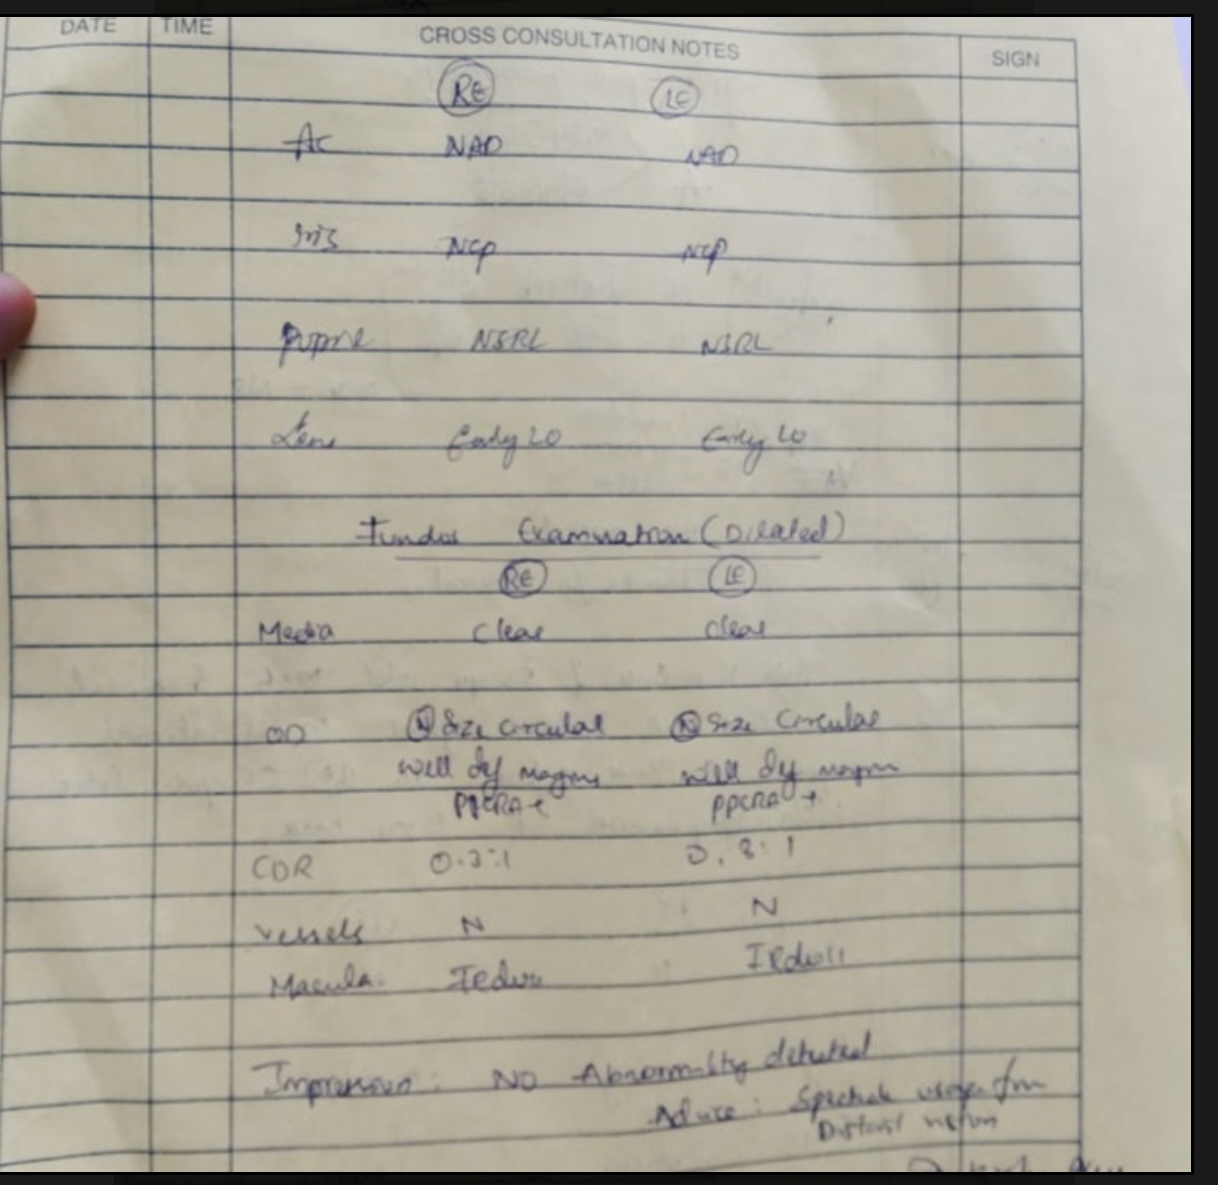 DATE TIME CROSS CONSULTATION NOTES SIGN
RE LE
AC NAD NAD
Iris NCP NCP
NSRL NSRL
Lens Early LO Early LO
Fundus Examination (Dilated)
RE LE
Media Clear clear
OD N Size Circular N Size Circular
well def margins well def margin
PPCRA + PPCRA +
CDR 0.3:1 0.3:1
Vessels N N
Macula.
Impression: NO Abnormality detected
Advice: Spectacle usage for
Distant vision